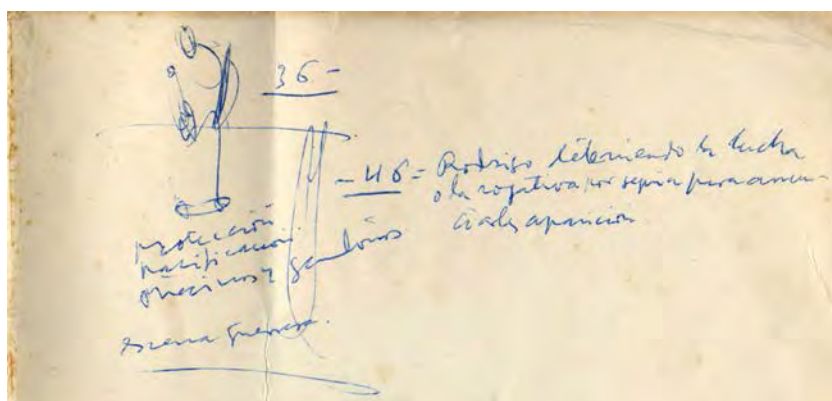 36-
-46= Rodrigo deteniendo la lucha
o la rogativa por sequía para anun-
ciarles aparición
protección
pacificación
oñecinos y gamboinos
escena guerrera.